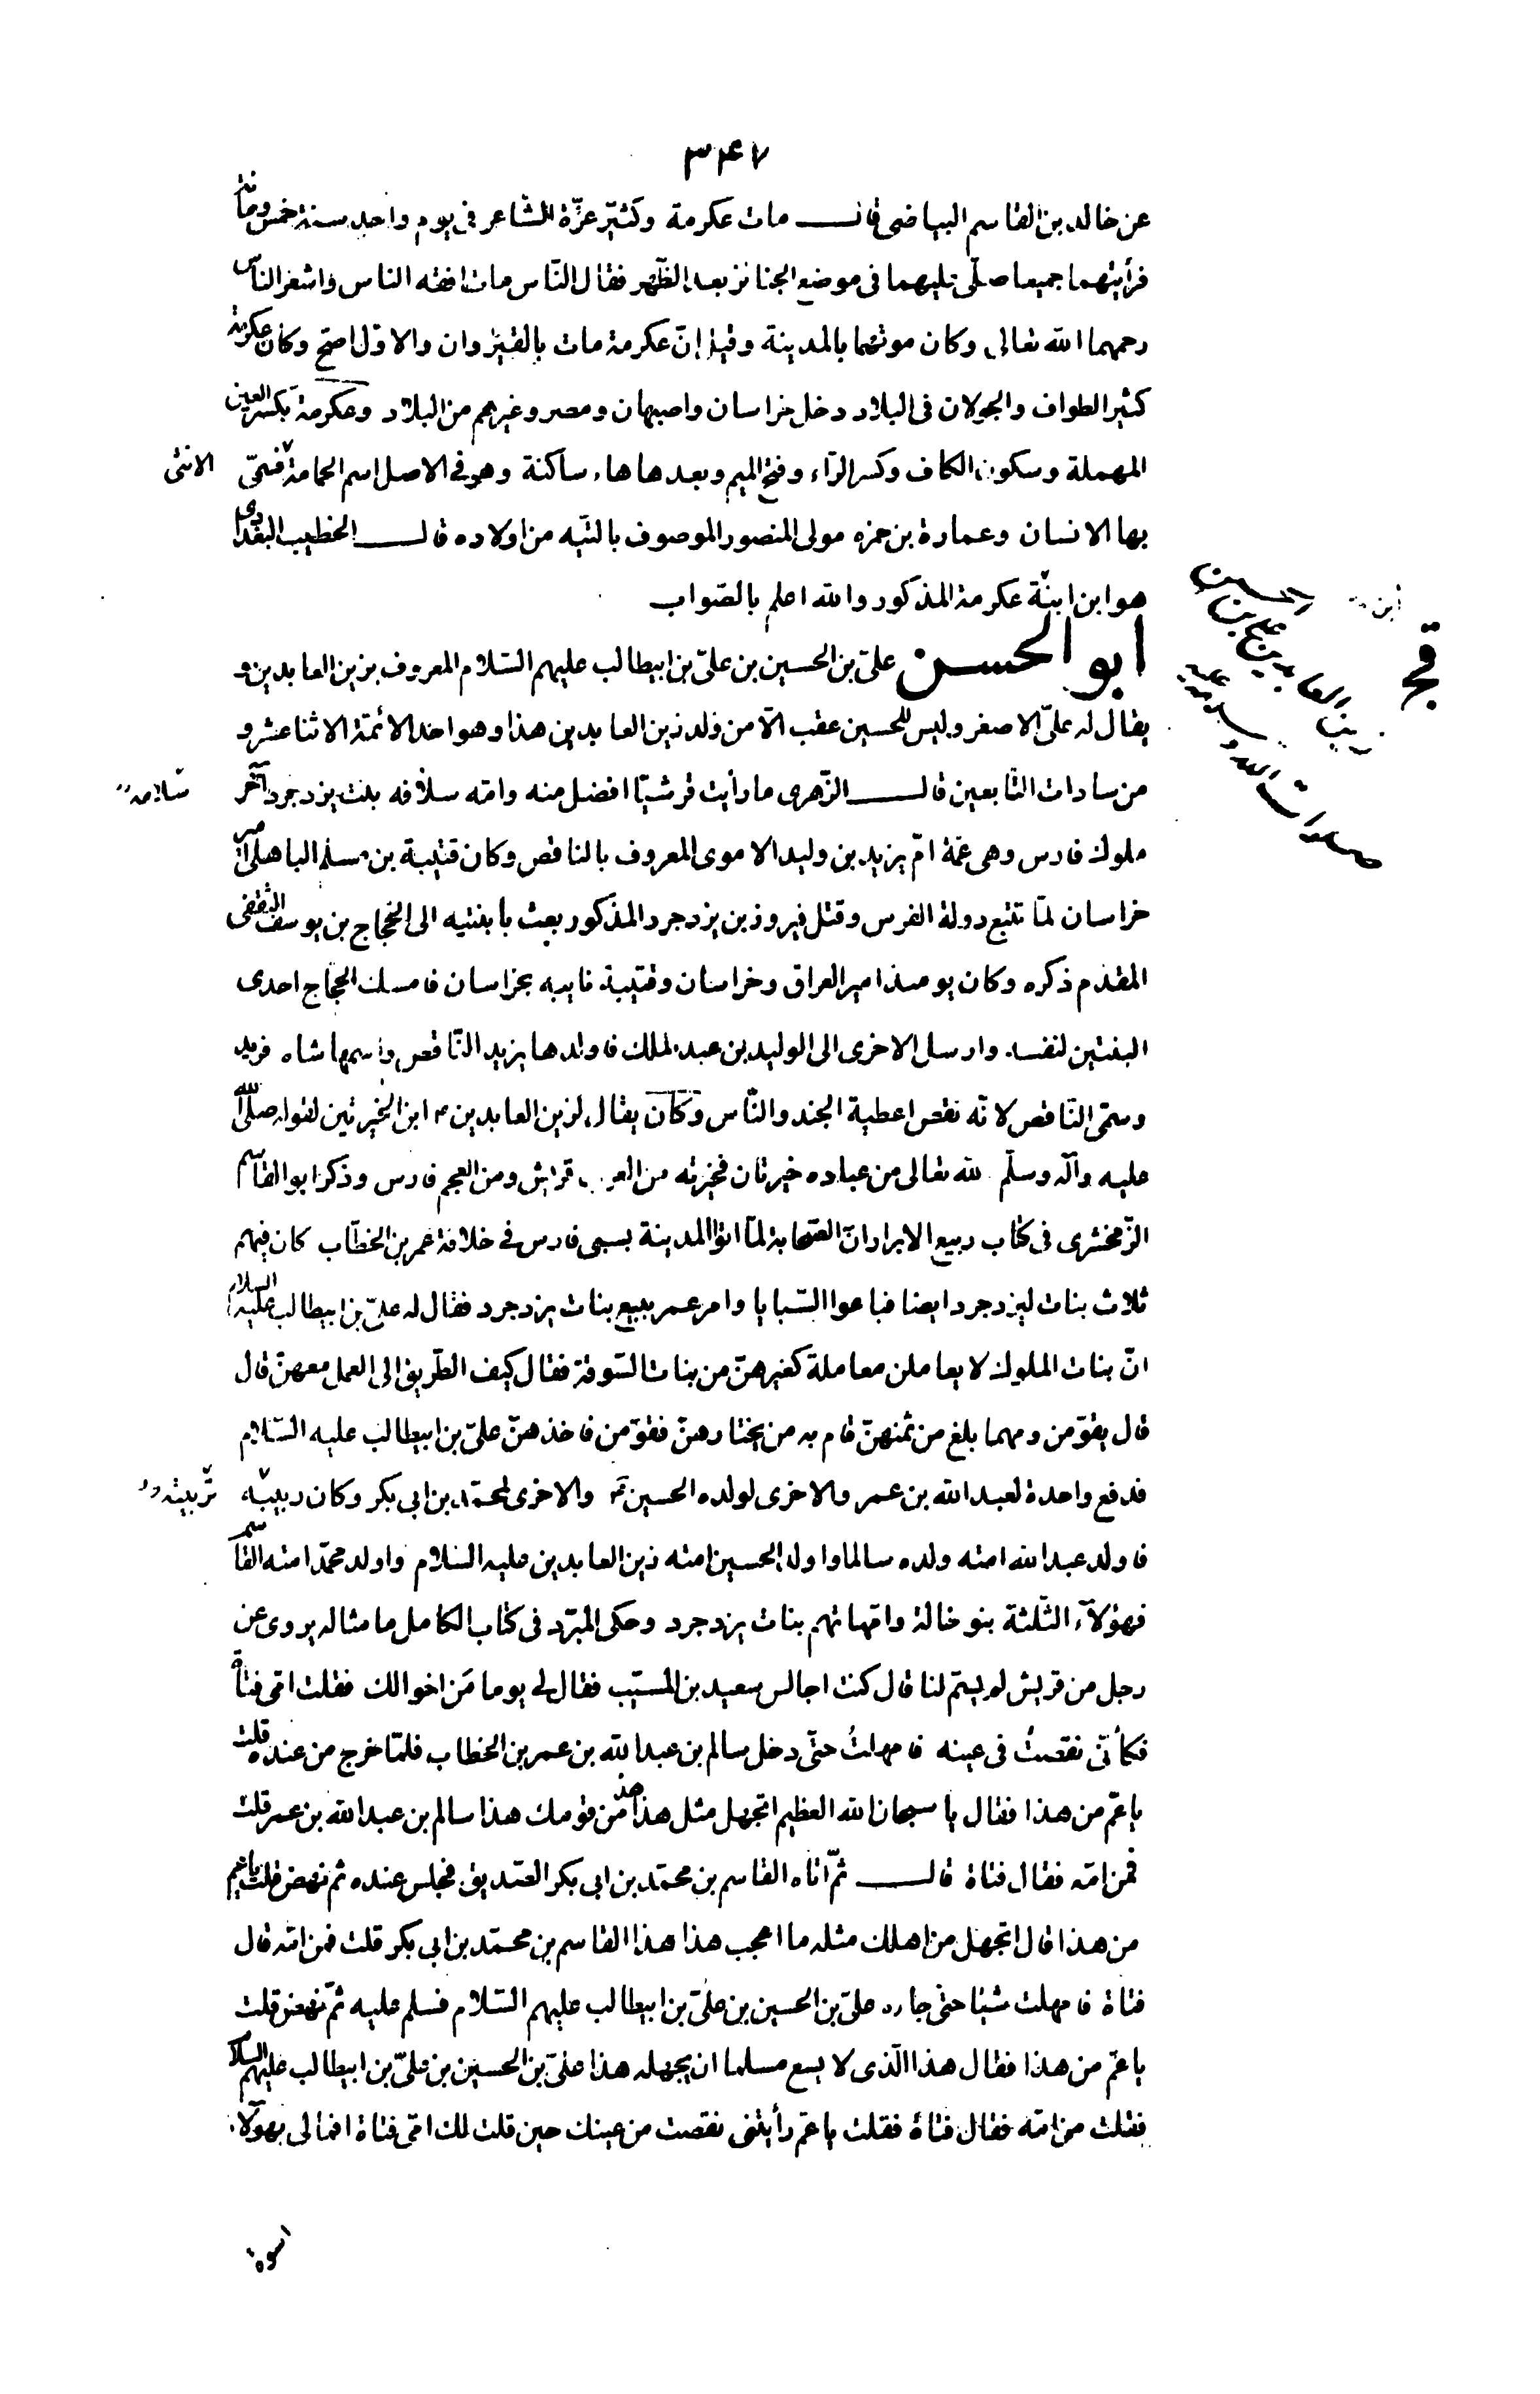 ٣٤٧
عن خالد بن القاسم البياضى قال مات عكرمة وكثيّر عزّة الشّاعر فى يوم واحد سنة خمس ومائة
فرأيتهما جميعا صلّى عليهما فى موضع الجنائز بعد الظّهر فقال النّاس مات افقه الناس واشعر الناس
رحمهما الله تعالى وكان موتهما بالمدينة وقيل إنّ عكرمة مات بالقيروان والاوّل اصحّ وكان عكرمة
كثير الطواف والجولان فى البلاد دخل خراسان واصبهان ومصر وغيرهم من البلاد وعكرمة بكسر العين
المهملة وسكون الكاف وكسر الرّاء وفتح الميم وبعدها هاء ساكنة وهو فى الاصل اسم الحمامة فسمّى الانثى
بها الانسان وعمارة بن حمزه مولى المنصور الموصوف بالتّيه من اولاده قال الخطيب البغدادى
هو ابن ابنة عكرمة المذكور والله اعلم بالصّواب
ابو الحسن علىّ بن الحسين بن علىّ بن ابيطالب عليهم السّلام المعروف بزين العابدين و
يقال له علىّ الاصغر وليس للحسين عقب الّا من ولد زين العابدين هذا وهو احد الائمّة الاثنا عشر و
من سادات التّابعين قال الزّهرى ما رأيت قرشيّا افضل منه وامّه سلافه بنت يزدجرد آخر سلامه
ملوك فارس وهى عمّة امّ يزيد بن وليد الاموى المعروف بالناقص وكان قتيبة بن مسلم الباهلى امير
خراسان لمّا تتبع دولة الفرس وقتل فيروز بن يزدجرد المذكور بعث بابنتيه الى الحجّاج بن يوسف الثقفى
المقدّم ذكره وكان يومئذ امير العراق وخراسان وقتيبة نايبه بخراسان فامسك الحجّاج احدى
البنتين لنفسه وارسل الاخرى الى الوليد بن عبد الملك فاولدها يزيد النّاقص واسمها شاه فريد
وسمّى النّاقص لانّه نقص اعطية الجند والنّاس وكان يقال لزين العابدين ع ابن الخيرتين لقوله صلّى الله
عليه وآله وسلّم لله تعالى من عباده خيرتان فخيرته من العرب قرايش ومن العجم فارس وذكر ابو القاسم
الزّمخشرى فى كتاب ربيع الابرار انّ الصّحابة لمّا اتوا المدينة بسبى فارس فى خلافة عمر بن الخطّاب كان فيهم
ثلاث بنات ليزدجرد ايضا فباعوا السّبايا وامر عمر ببيع بنات يزدجرد فقال له علىّ بن ابيطالب عليه السلام
انّ بنات الملوك لا يعاملن معاملة كغيرهنّ من بنات السّوقة فقال كيف الطّريق الى العمل معهنّ قال
قال يقوّمن ومهما بلغ من ثمنهنّ قام به من يختارهنّ فقوّمن فاخذهنّ علىّ بن ابيطالب عليه السّلام
فدفع واحدة لعبد الله بن عمر والاخرى لولده الحسين ع والاخرى لمحمّد بن ابى بكر وكان ربيبه تربيته
فاولد عبد الله امته ولده سالما واولد الحسين امته زين العابدين عليه السلام واولد محمّد امته القاسم
فهؤلآء الثّلثة بنو خالة وامّهاتهم بنات يزدجرد وحكى المبرّد فى كتاب الكامل ما مثاله يروى عن
رجل من قريش لم يسمّ لنا قال كنت اجالس سعيد بن المسيّب فقال لى يوما مَن اخوالك فقلت امّى فتاة
فكأنّى نقصتُ فى عينه فامهلتُ حتّى دخل سالم بن عبد الله بن عمر بن الخطاب فلمّا خرج من عنده قلت
يا عمّ من هذا فقال يا سبحان الله العظيم اتجهل مثل هذا من قومك هذا سالم بن عبد الله بن عمر قلت
فمن امّه فقال فتاة قال ثمّ اتاه القاسم بن محمّد بن ابى بكر الصّديق فجلس عنده ثم نهض قلت يا عم
من هذا قال اتجهل من اهلك مثله ما اعجب هذا هذا القاسم بن محمّد بن ابى بكر قلت فمن امّه قال
فتاة فامهلت شيئا حتى جاء علىّ بن الحسين بن علىّ بن ابيطالب عليهم السّلام فسلم عليه ثمّ نهض قلت
يا عمّ من هذا فقال هذا الّذى لا يسع مسلما ان يجهله هذا علىّ بن الحسين بن علىّ بن ابيطالب عليهم السلام
فقلت من امّه فقال فتاة فقلت يا عمّ رأيتنى نقصت من عينك حين قلت لك امّى فتاة افما لى بهؤلاء
اسوة
زين العابدين على بن الحسين
صلوات الله وسلامه عليه